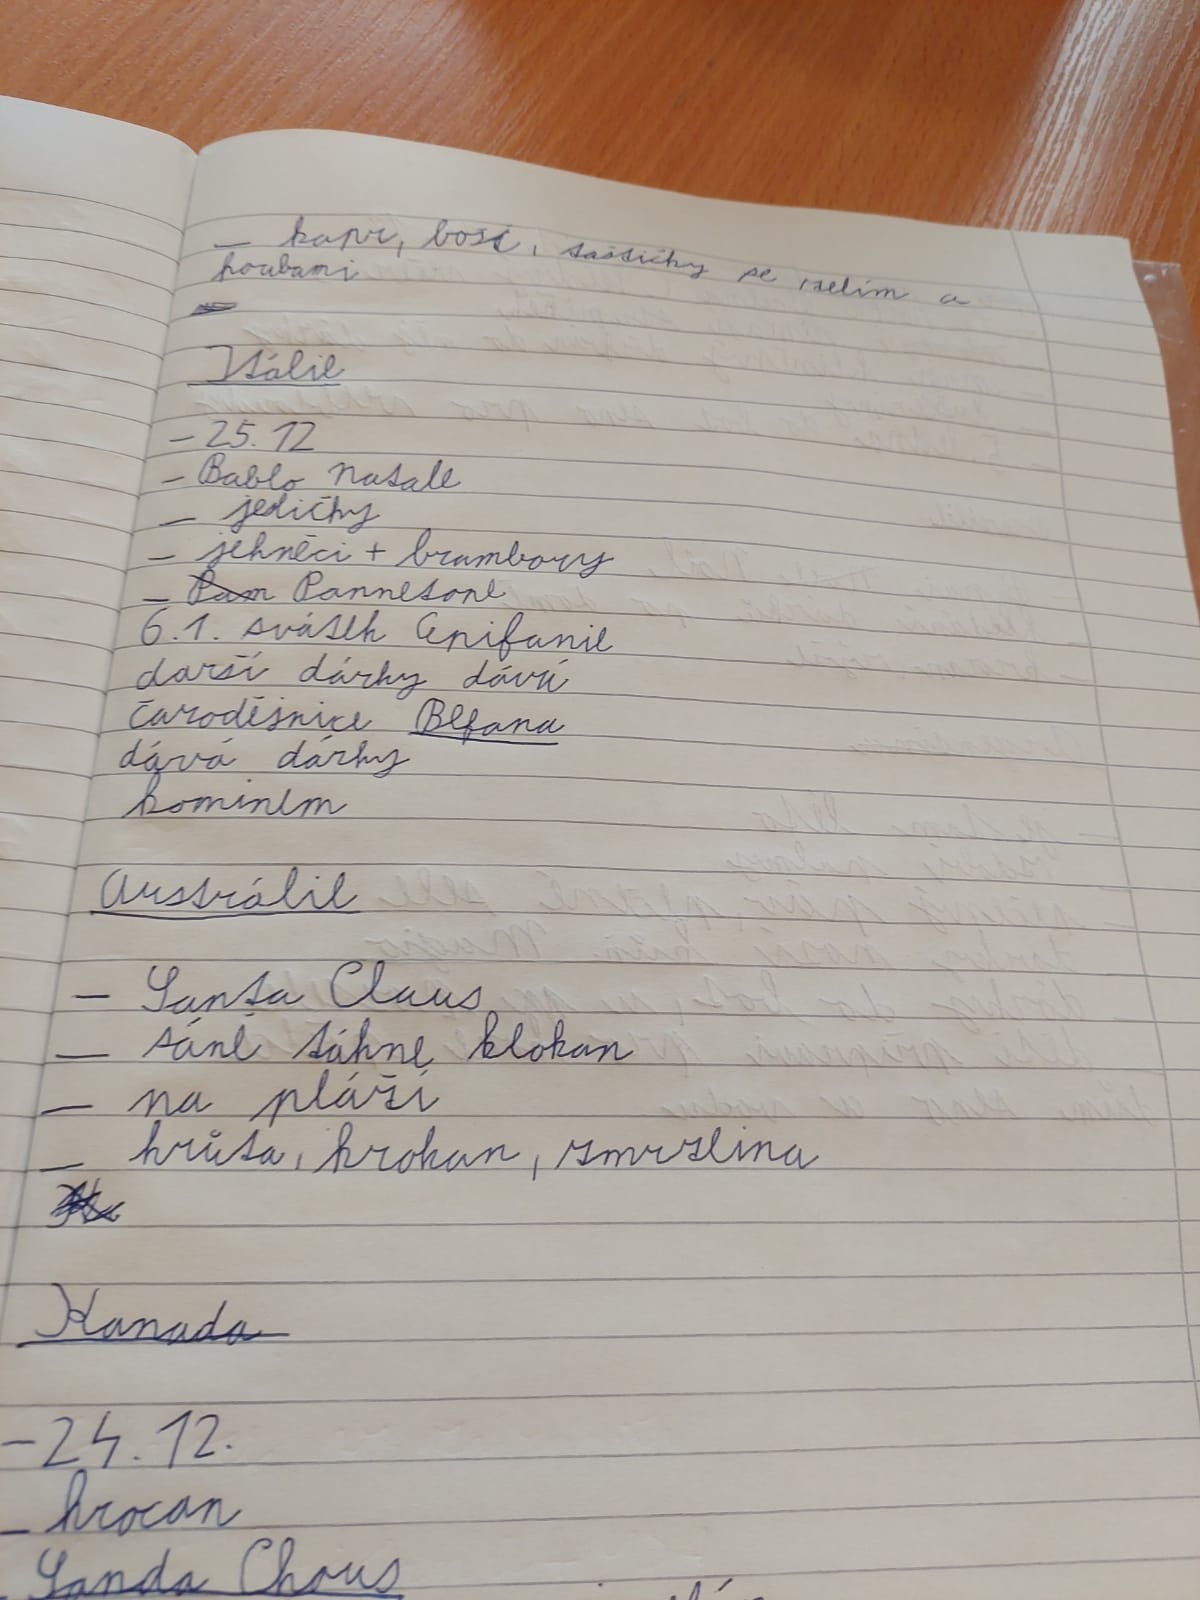 – kapr, boršč, taštičky se zelím a
houbami
Itálie
– 25. 12
– Bablo Natale
– jedičky
– jehněčí + brambory
– Pam Pannetone
6. 1. svátek Epifanie
darší dárky dává
čaroděsnice Befana
dává dárky
komínem
Austrálie
– Santa Claus
– sáně táhne klokan
– na pláži
– krůta, krokan, zmrzlina
Kanada
– 24. 12.
– krocan
– Sanda Chous